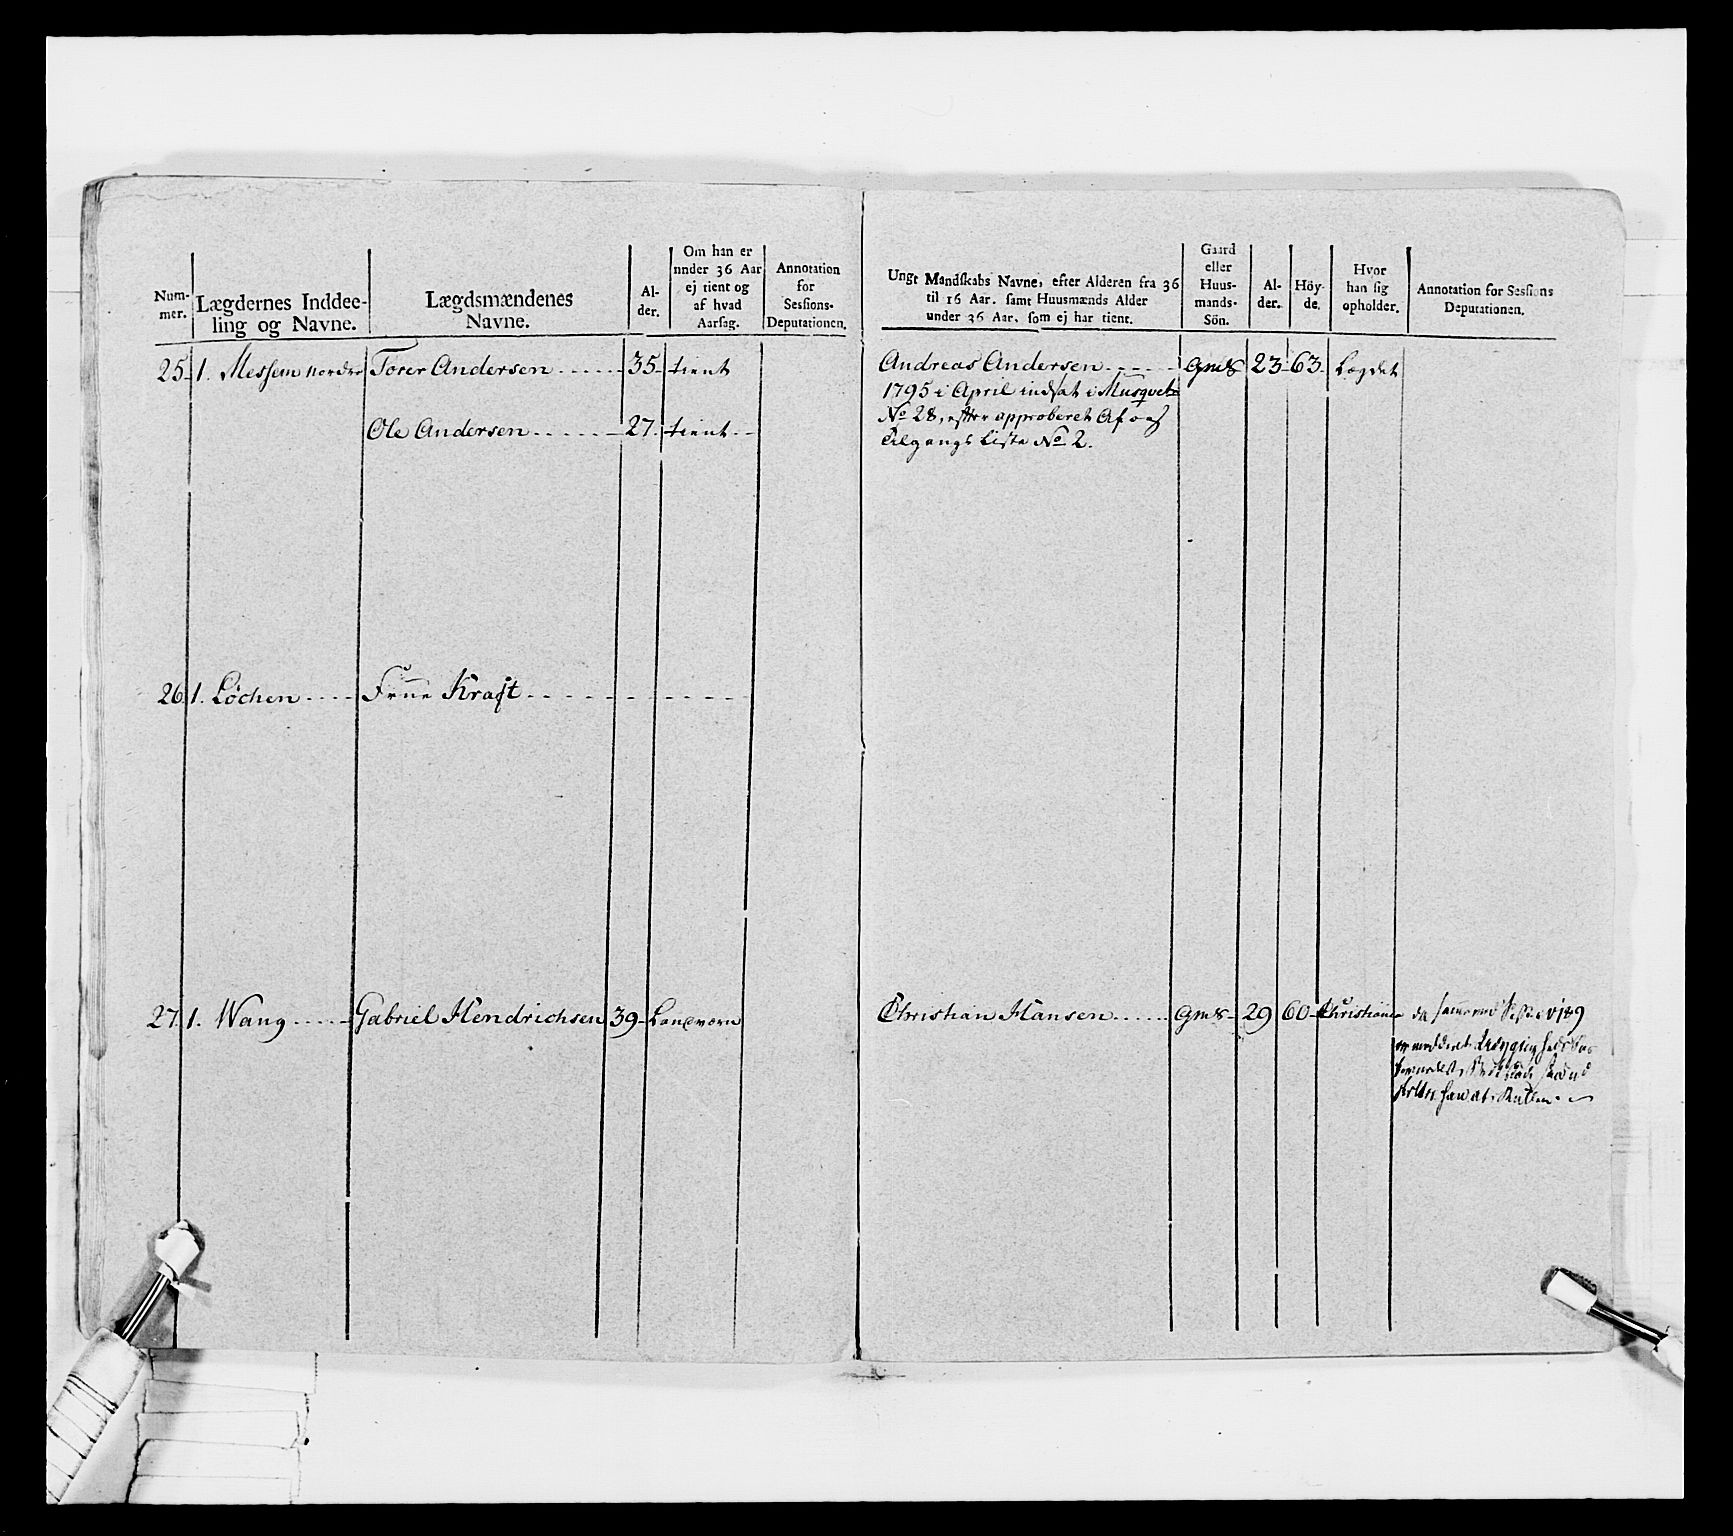 Num-
mer.
Lægdernes Inddee-
ling og Navne.
Lægdsmændenes
Navne.
Al-
der.
Om han er
under 36 Aar
ej tient og
af hvad
Aarsag.
Annotation
for
Sessions-
Deputationen.
Ungt Mandskabs Navne, efter Alderen fra 36
til 16 Aar. samt Huusmænds Alder
under 36 Aar, som ej har tient.
Gaard
eller
Huus-
mands-
Sön.
Al-
der.
Höy-
de.
Hvor
han sig
opholder.
Annotation for Sessions
Deputationen.
25. 1. Messem Nordre Torer Andersen 35 tient
Ole Andersen 27. tient
Andreas Andersen gmS 23 63 Lægdet
1795 i April indsat i Musquet
No 28, efter approberet Af og
Tilgangs Liste No 2.
26. 1. Löchen Frue Kraft
27. 1. Wang Gabriel Hendrichsen 39 Landværn
Christian Hansen gmS 29 60 Christiania